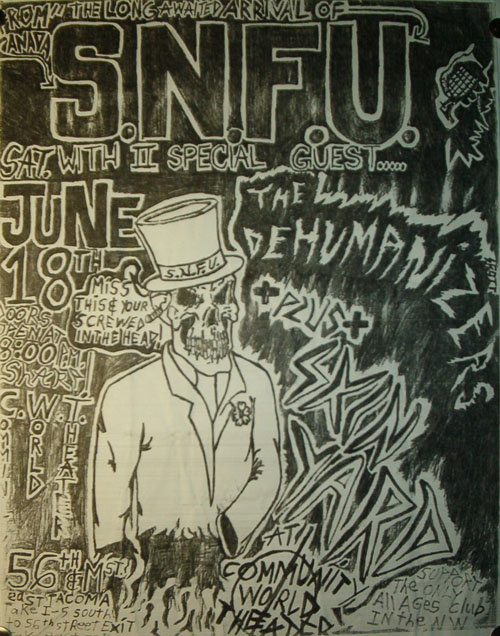 FROM THE LONG AWAITED ARRIVAL OF
CANADA
S.N.F.U.
SAT. WITH II SPECIAL GUEST.....
JUNE
18TH
THE
DEHUMANIZERS
+PLUS+
YARD
S.N.F.U.
MISS
THIS & YOUR
SCREWED
IN THE HEAD
DOORS
OPEN AT
8:00 P.M.
SHARP
C.W.T.
COMMUNITY
WORLD
THEATER
56TH & M ST.
east TACOMA
take I-5 south
to 56th street EXIT
AT
COMMUNITY
WORLD
THEATER
SUPPORT
The ONLY
All Ages Club
IN the N.W